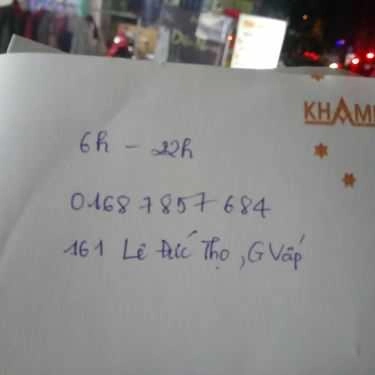 KHAM
6h - 22h
01687857684
161 Lê Đức Thọ, G Vấp